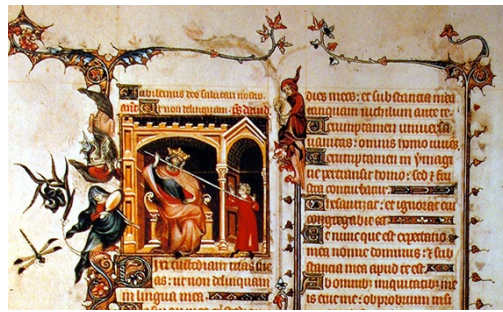 Jubilemus deo salutari nostro
Ut non delinquam
Dixi custodiam vias me
as: ut non delinquam
in lingua mea
dies meos: et substantia mea
tanquam nichilum ante te.
Verumptamen universa
vanitas: omnis homo vivens.
Verumptamen in ymagi
ne pertransit homo: sed et fru
stra conturbatur.
Thesaurizat: et ignorat cui
congregabit ea.
Et nunc que est expectatio
mea nonne dominus: et sub
stancia mea apud te est.
Ab omnibus iniquitatibus me
is erue me: obprobrium insi